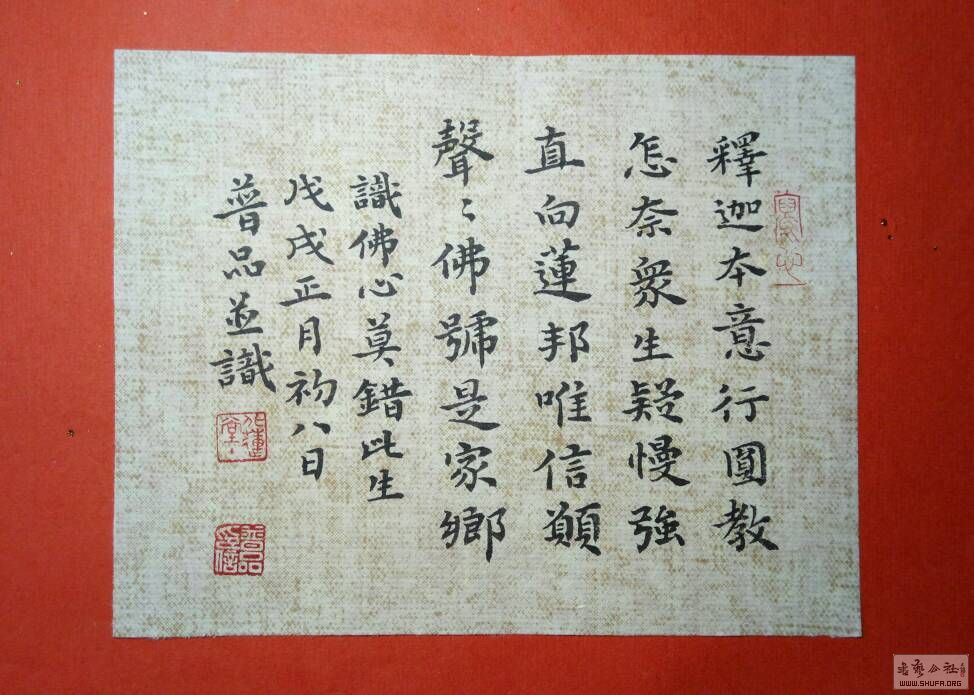 釋迦本意行圓教
怎奈衆生疑慢強
直向蓮邦唯信願
聲〻佛號是家鄉
識佛心莫錯此生
戊戌正月初八日
普品並識
普品
WWW.SHUFA.ORG